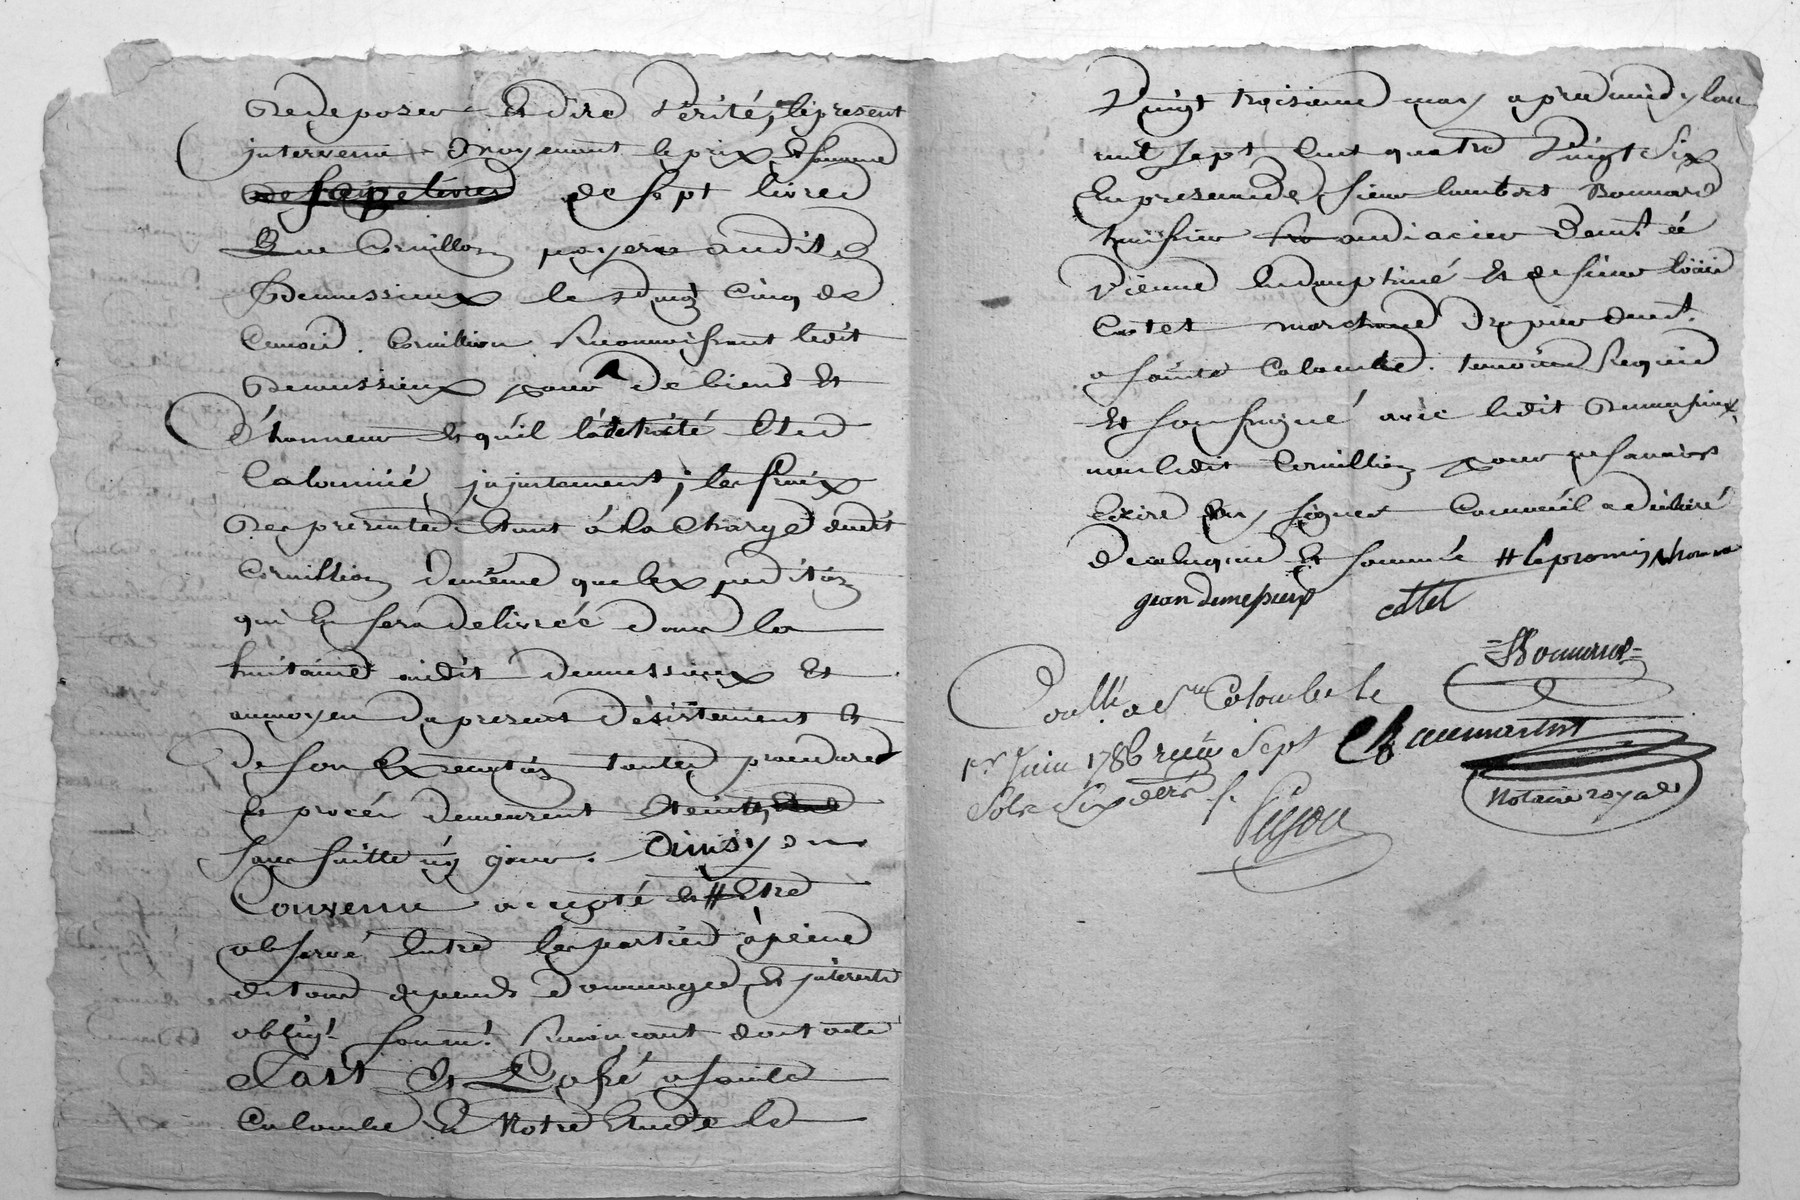 de deposer et dire verité, le present
intervenu moyenant le prix et somme
de sept livres
que Cornillon payera audit
Demessieux le cinq de
ce mois. Cornillion Reconnoissant ledit
Demessieux pour de biens et
d'honneur et qu'il l'a detraité et
Calomnié injustement; les fraix
des presentes étant à la charge dudit
Cornillion de même que l'expedition
qui en sera delivrée dans la
huitaine audit Demessieux et
au moyen du present désistement et
de son execution toutes procedures
et procés demeurent éteints
sans suitte Ainsy
Convenu accepté et # etre
observé entre les parties à peine
de tous depends dommages et interests
oblig.t soum.t Renonçant dont acte
Fait et Passé a sainte
Colombe en Notre Etude le
Vingt troisieme may apres midy l'an
mil sept cent quatre Vingt Six
En presence de sieur Lambert Bonnard
huissier audiancier demt. à
Vienne en dauphiné et de sieur
Catet marchand drapier demt.
a sainte Colombe. temoins Requis
et soussigné avec ledit Demessieux
non ledit Cornillion pour ne savoir
Ecrire ny signer Comme il a déclaré
de ce Enquis et sommé # le promis
jean demesieux catet
=Bonnard=
Con.lé a Ste Colombe le
1er Juin 1786 reçu Sept
Sols Six den.
Chaumartin
Notaire royal